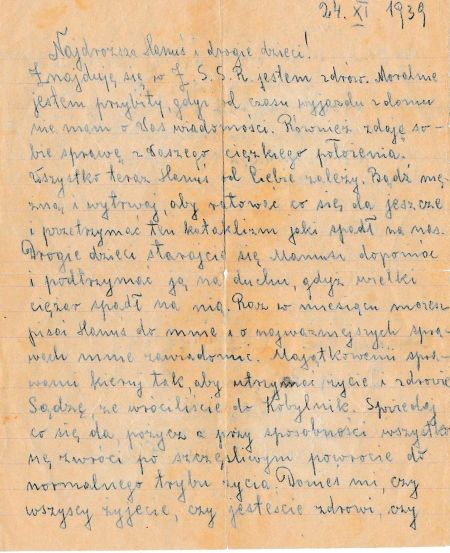 24. XI 1939
Najdroższa Hanuś i drogie dzieci!
Znajduję się w Z.S.S.R. jestem zdrów. Moralnie
jestem przybity, gdyż od czasu wyjazdu z domu
nie mam o Was wiadomości. Również zdaję so-
bie sprawę z Waszego ciężkiego położenia.
Wszystko teraz Hanuś od Ciebie zależy. Bądź mę-
żną i wytrwaj, aby ratować co się da jeszcze
i przetrzymać ten kataklizm jaki spadł na nas.
Drogie dzieci starajcie się Mamusi dopomóc
i podtrzymać ją na duchu, gdyż wielki
ciężar spadł na nią. Raz w miesiącu możesz
pisać Hanuś do mnie i o najważniejszych spra-
wach mnie zawiadomić. Majątkowemi spra-
wami kieruj tak, aby utrzymać życie i zdrowie
Sądzę, że wróciliście do Kobylnik. Sprzedaj
co się da, pożycz a przy sposobności wszystko
się zwróci po szczęśliwym powrocie do
normalnego trybu życia. Donieś mi, czy
wszyscy żyjecie, czy jesteście zdrowi, czy